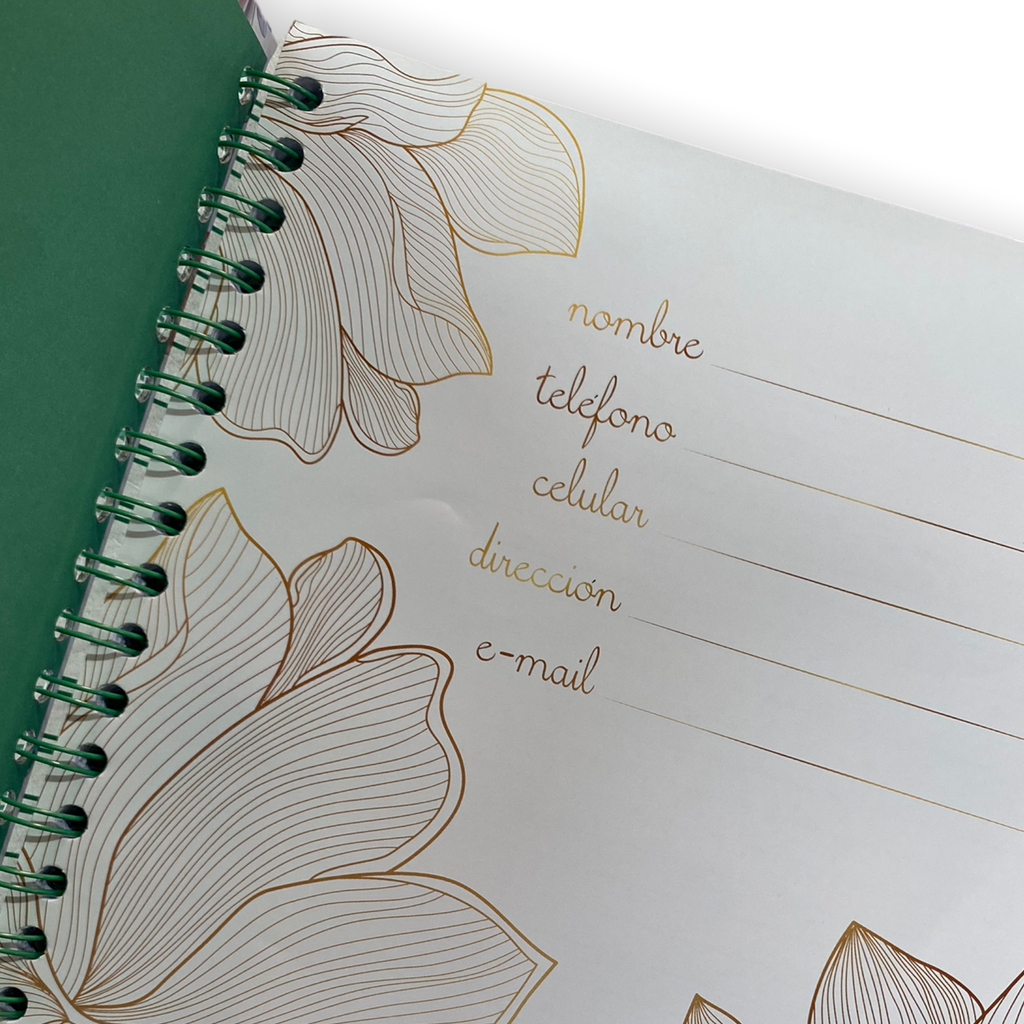 nombre
teléfono
celular
dirección
e-mail